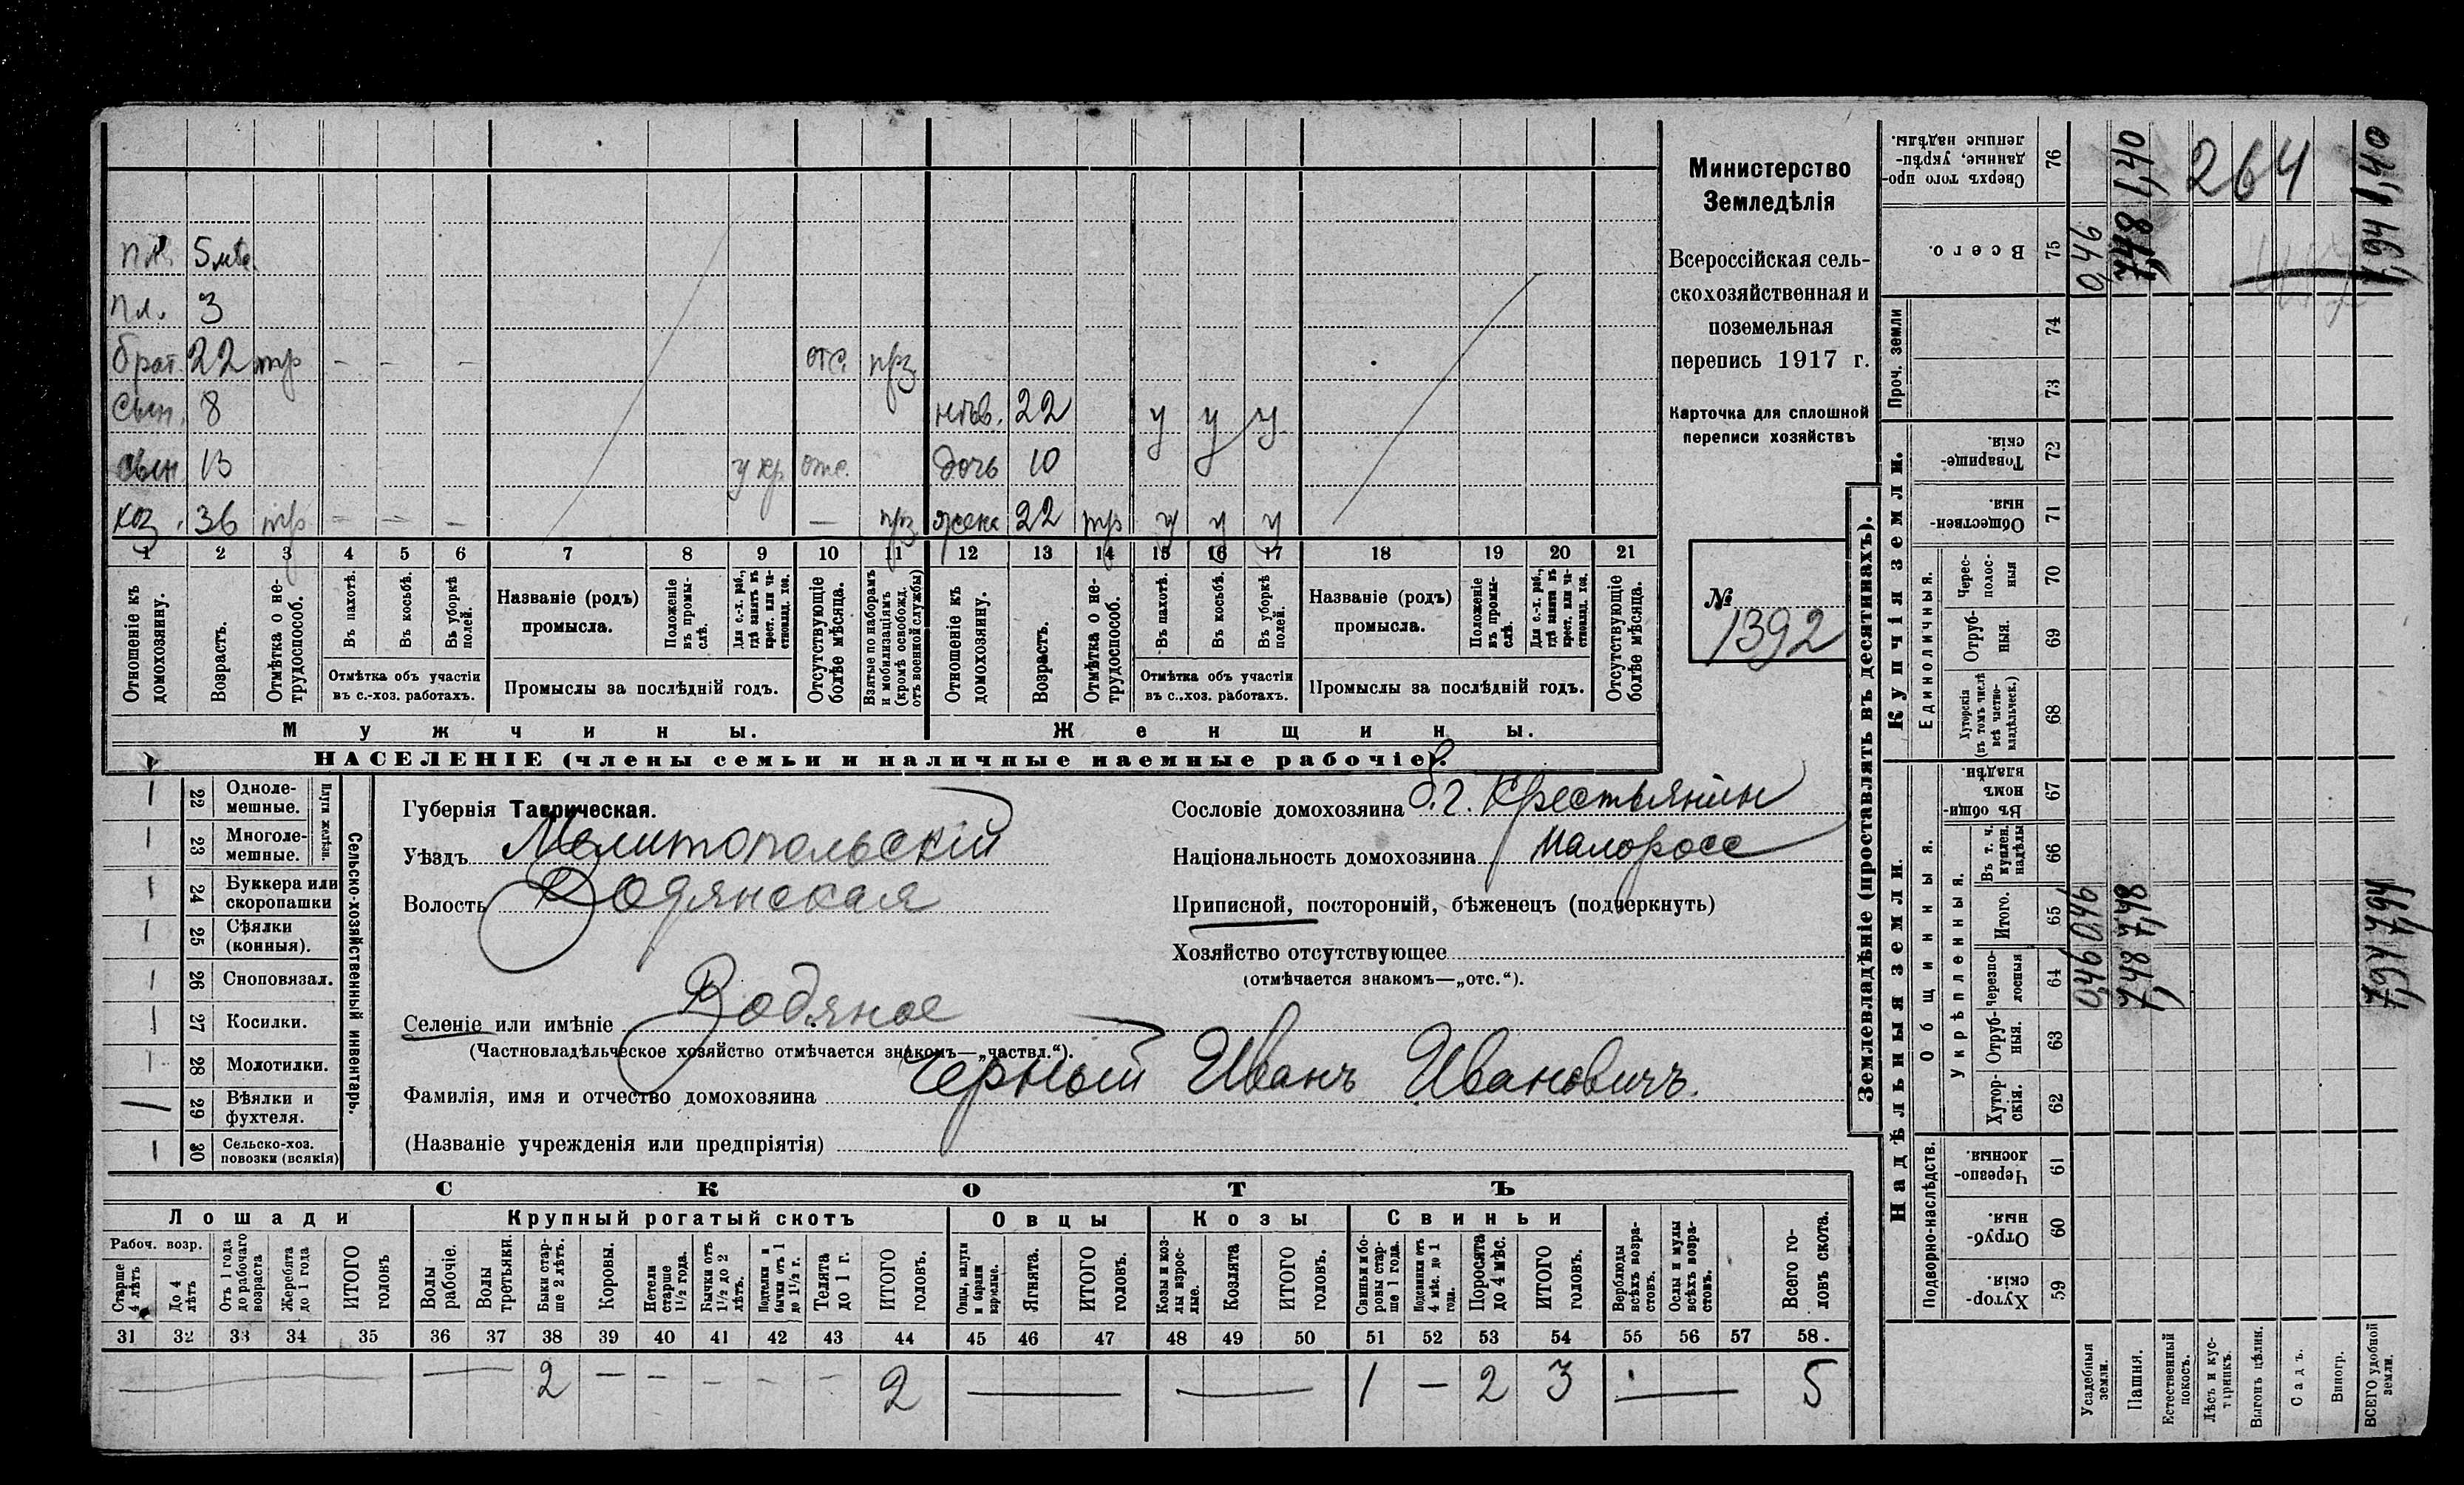 пл. 5 мѣс.
пл. 3
брат. 22 тр - - - отс. прз.
сын. 8 нѣв. 22 у у у
сын 13 у кр. отс. дочь 10
хоз. 36 тр - - - — прз жена 22 тр у у у
1 2 3 4 5 6 7 8 9 10 11 12 13 14 15 16 17 18 19 20 21
Отношеніе къ домохозяину.
Возрастъ.
Отмѣтка о нетрудоспособ.
Въ пахотѣ.
Въ косьбѣ.
Въ уборкѣ полей.
Отмѣтка объ участіи
въ с.-хоз. работахъ.
Названіе (родъ)
промысла.
Положеніе въ промыслѣ.
Для с.-х. раб., гдѣ занятъ въ крест. или частновлад. хоз.
Промыслы за послѣдній годъ.
Отсутствующіе болѣе мѣсяца.
Взятые по наборамъ и мобилизаціямъ (кромѣ освобожд. отъ военной службы)
Отношеніе къ домохозяину.
Возрастъ.
Отмѣтка о нетрудоспособ.
Въ пахотѣ.
Въ косьбѣ.
Въ уборкѣ полей.
Отмѣтка объ участіи
въ с..хоз. работахъ.
Названіе (родъ)
промысла.
Положеніе въ промыслѣ.
Для с.-х. раб., гдѣ занята въ крест. или частновлад. хоз.
Промыслы за послѣдній годъ.
Отсутствующіе болѣе мѣсяца.
Мужчины. Женщины.
НАСЕЛЕНІЕ (члены семьи и наличные наемные рабочіе).
Министерство
Земледѣлія
Всероссійская сель-
скохозяйственная и
поземельная
перепись 1917 г.
Карточка для сплошной
переписи хозяйствъ
№
1392
22 Одноле-
мешные.
23 Многоле-
мешные.
Плуги желѣзн.
24 Буккера или
скоропашки
25 Сѣялки
(конныя).
26 Сноповязал.
27 Косилки.
28 Молотилки.
29 Вѣялки и
фухтеля.
30 Сельско-хоз.
повозки (всякія)
Сельско-хозяйственный инвентарь.
Губернія Таврическая.
Уѣздъ Мелитопольскій
Волость Водянская
Селеніе или имѣніе Водяное
(Частновладѣльческое хозяйство отмѣчается знакомъ—„частвл.“).
Фамилія, имя и отчество домохозяина Черный Иванъ Ивановичъ.
(Названіе учрежденія или предпріятія)
Сословіе домохозяина б. г. Крестьянин
Національность домохозяина малоросс
Приписной, посторонній, бѣженецъ (подчеркнуть)
Хозяйство отсутствующее
(отмѣчается знакомъ—„отс.“).
СКОТЪ
Лошади Крупный рогатый скотъ Овцы Козы Свиньи
Рабоч. возр.
Старше 4 лѣтъ
До 4 лѣтъ
Отъ 1 года до рабочаго возраста
Жеребята до 1 года
ИТОГО головъ
Волы рабочіе.
Волы третьяки.
Быки старше 2 лѣтъ.
Коровы.
Нетели старше 1½ года.
Бычки отъ 1½ до 2 лѣтъ.
Подтелки и бычки отъ 1 до 1½ г.
Телята до 1 г.
ИТОГО головъ.
Овцы, валухи и бараны взрослые.
Ягнята.
ИТОГО головъ.
Козы и козлы взрослые.
Козлята
ИТОГО головъ.
Свиньи и боровы старше 1 года.
Подсвинки отъ 4 мѣс. до 1 года.
Поросята до 4 мѣс.
ИТОГО головъ.
Верблюды всѣхъ возрастовъ.
Ослы и мулы всѣхъ возрастовъ.
Всего головъ скота.
31 32 33 34 35 36 37 38 39 40 41 42 43 44 45 46 47 48 49 50 51 52 53 54 55 56 57 58.
— — 2 - - - - - 2 — — 1 - 2 3 — 5
Землевладѣніе (проставлять въ десятинахъ).
Надѣльныя земли. Купчія земли. Проч. земли
Подворно-наслѣдств.
Общинныя.
Укрѣпленныя.
Единоличныя.
Хуторскія 59
Отрубныя. 60
Черезполосныя. 61
Хуторскія. 62
Отрубныя. 63
Черезполосныя 64
Итого. 65
Въ т. ч. куплен. надѣлы 66
Въ общинномъ владѣн. 67
Хуторскія (въ томъ числѣ всѣ частновладѣльческ.) 68
Отрубныя. 69
Чересполосныя 70
Общественныя 71
Товарищескія. 72
73
74
Всего. 75
Сверхъ того проданные, укрѣпленные надѣлы. 76
Усадебныя земли. 0,46 0,46 0,46
Пашня. 7,48 7,48 7,48 7,40
Естественный покосъ.
Лѣсъ и кустарникъ.
Выгонъ цѣлин.
Садъ.
Виногр.
ВСЕГО удобной земли. 7,94 7,94 7,94 7,40
264